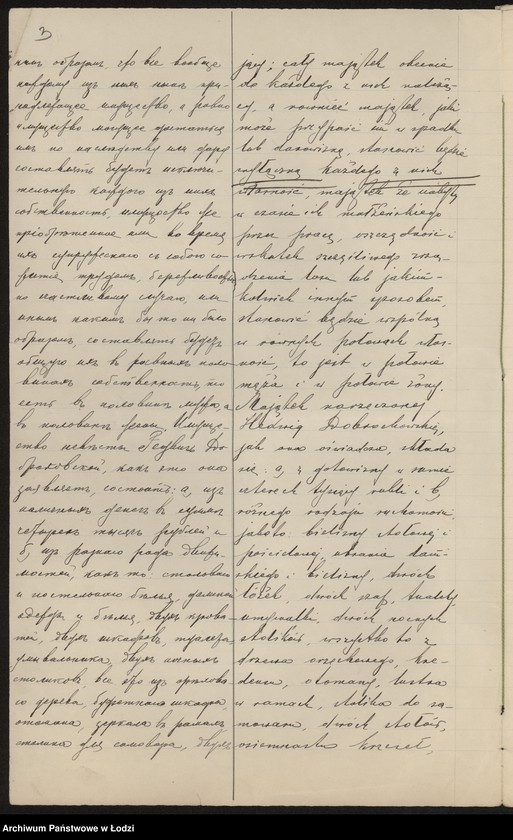 3
нымъ образомъ, что все вообще
каждому изъ нихъ нынѣ при-
надлежащее имущество, а равно
имущество могущее достаться
имъ по наслѣдству или дару
составлять будетъ исключи-
тельную каждаго изъ нихъ
собственность, имущество же
пріобрѣтенное ими во время
ихъ супружескаго съ собою со-
житія, трудомъ, бережливостью
по счастливому случаю, или
инымъ какимъ бы то ни было
образомъ, составлять будетъ
общую ихъ въ равныхъ поло-
винахъ собственность, то
есть въ половинѣ мужа, а
въ половинѣ жены. Имуще-
ство невѣсты Гедвиги До-
броховской, какъ это она
заявляетъ, состоитъ: а, изъ
наличныхъ денегъ въ суммѣ
четырехъ тысячъ рублей и
б, изъ разнаго рода движи-
мостей, какъ то: столоваго
и постельнаго бѣлья, дамской
одежды и бѣлья, двухъ крова-
тей, двухъ шкафовъ, туалета,
умывальника, двухъ ночныхъ
столиковъ, все это изъ орѣхова-
го дерева, буфетнаго шкафа,
оттомана, зеркала въ рамахъ
столика для самовара, двухъ
jący; cały majątek obecnie
do każdego z nich należą-
cy, a również majątek, jaki
może przypaść im w spadku
lub darowizną, stanowić będzie
wyłączną każdego z nich
własność, majątek zaś nabyty
w czasie ich małżeńskiego
przez pracę, oszczędność i
wskutek szczęśliwego zrzą-
dzenia losu lub jakim-
kolwiek innym sposobem,
stanowić będzie wspólną
w równych połowach włas-
ność, to jest w połowie
męża i w połowie żony.
Majątek narzeczonej
Hedwig Dobrochowskiej,
jak ona oświadcza, składa
się: a, z gotowizny w sumie
czterech tysięcy rubli i b,
różnego rodzaju ruchomości
jakoto: bielizny stołowej i
pościelowej, ubrania dam-
skiego i bielizny, dwóch
łóżek, dwóch szaf, tualety,
umywalki, dwóch nocnych
stolików, wszystko to z
drzewa orzechowego, kre-
densu, otomany, lustra
w ramach, stolika do sa-
mowaru, dwóch stołów,
osiemnastu krzeseł,
Archiwum Państwowe w Łodzi